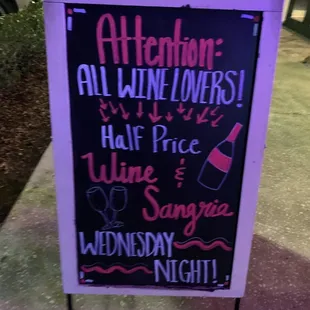 Attention:
ALL WINE LOVERS!
Half Price
Wine &
Sangria
WEDNESDAY
NIGHT!